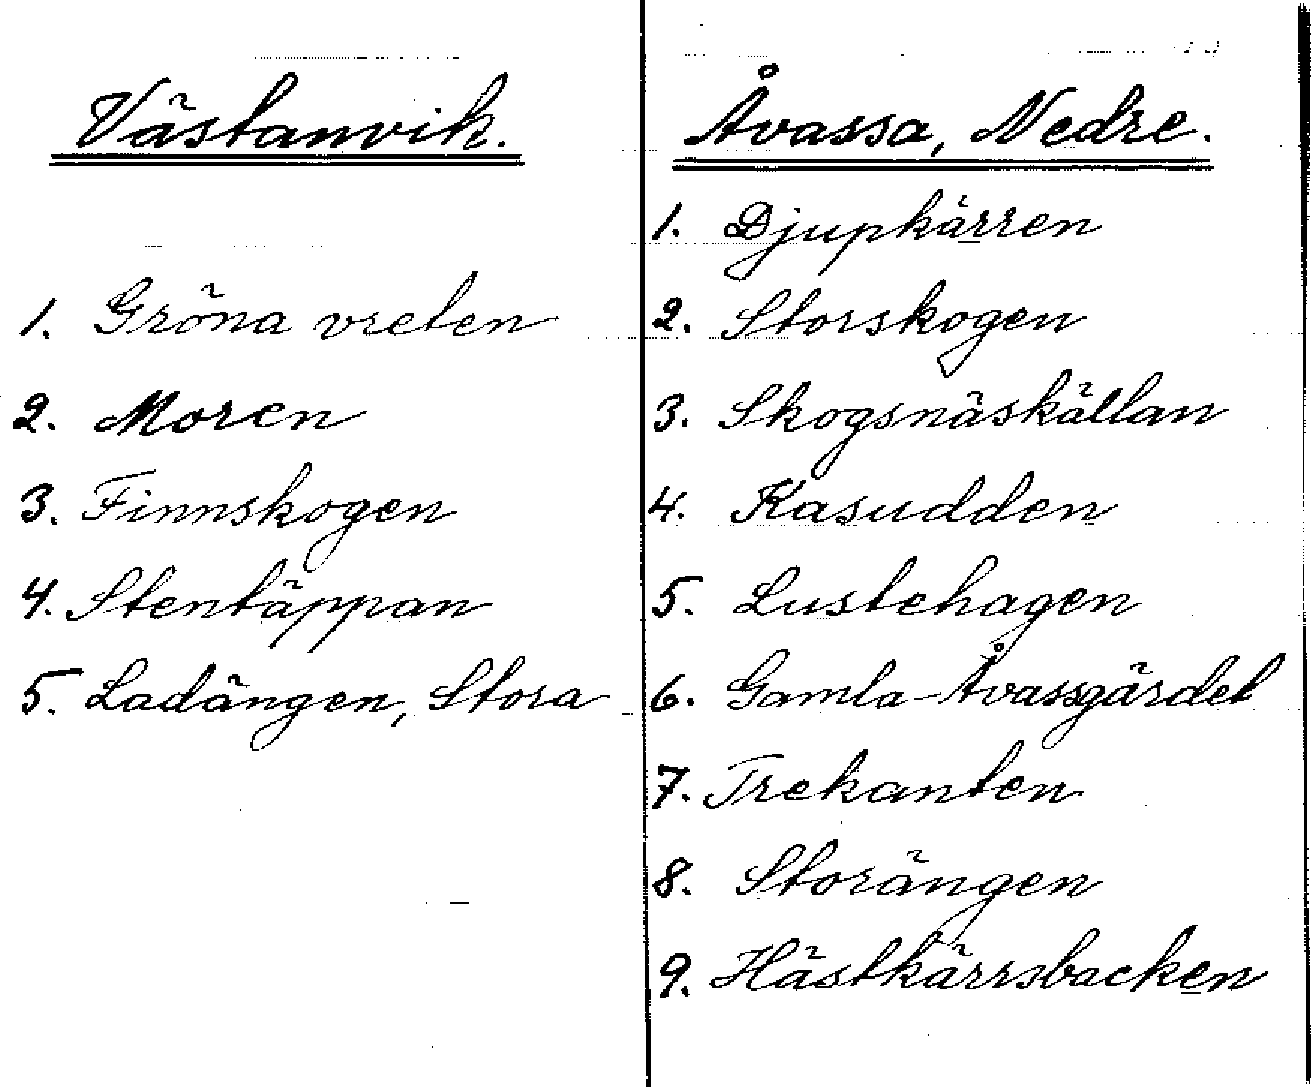 Västanvik.
1. Gröna vreten
2. Moren
3. Finnskogen
4. Stentäppan
5. Ladängen, Stora
Åvassa, Nedre.
1. Djupkärren
2. Storskogen
3. Skogsnäskällan
4. Kasudden
5. Lustehagen
6. Gamla-Åvassgärdet
7. Trekanten
8. Storängen
9. Hästkärrsbacken